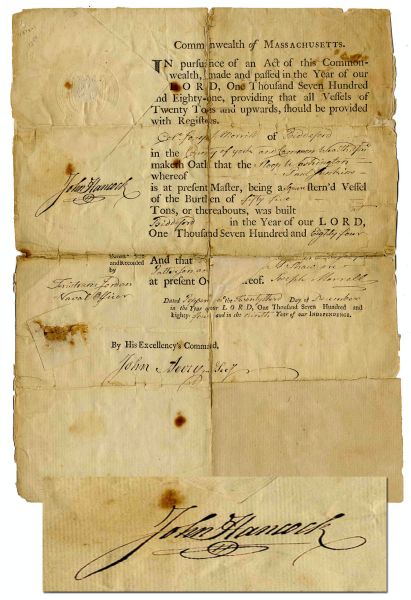 Commonwealth of MASSACHUSETTS.
IN pursuance of an Act of this Common-
wealth, made and passed in the Year of our
LORD, One Thousand Seven Hundred
and Eighty-one, providing that all Vessels of
Twenty Tons and upwards, should be provided
with Registers.
Joseph Morrill of Biddeford
in the County of York and Common Wealth
maketh Oath, that the Sloop Washington
whereof
is at present Master, being a stern'd Vessel
of the Burthen of fifty five
Tons, or thereabouts, was built
Biddeford in the Year of our LORD,
One Thousand Seven Hundred and Eighty four
John Hancock
and Recorded
by
Tristram Jordan
Naval Officer
And that
at present Owners thereof. Joseph Morrill
Dated the Twenty third Day of December
in the Year of our LORD, One Thousand Seven Hundred and
Eighty and in the Ninth Year of our INDEPENDENCE.
By His Excellency's Command,
John Avery Secy
John Hancock